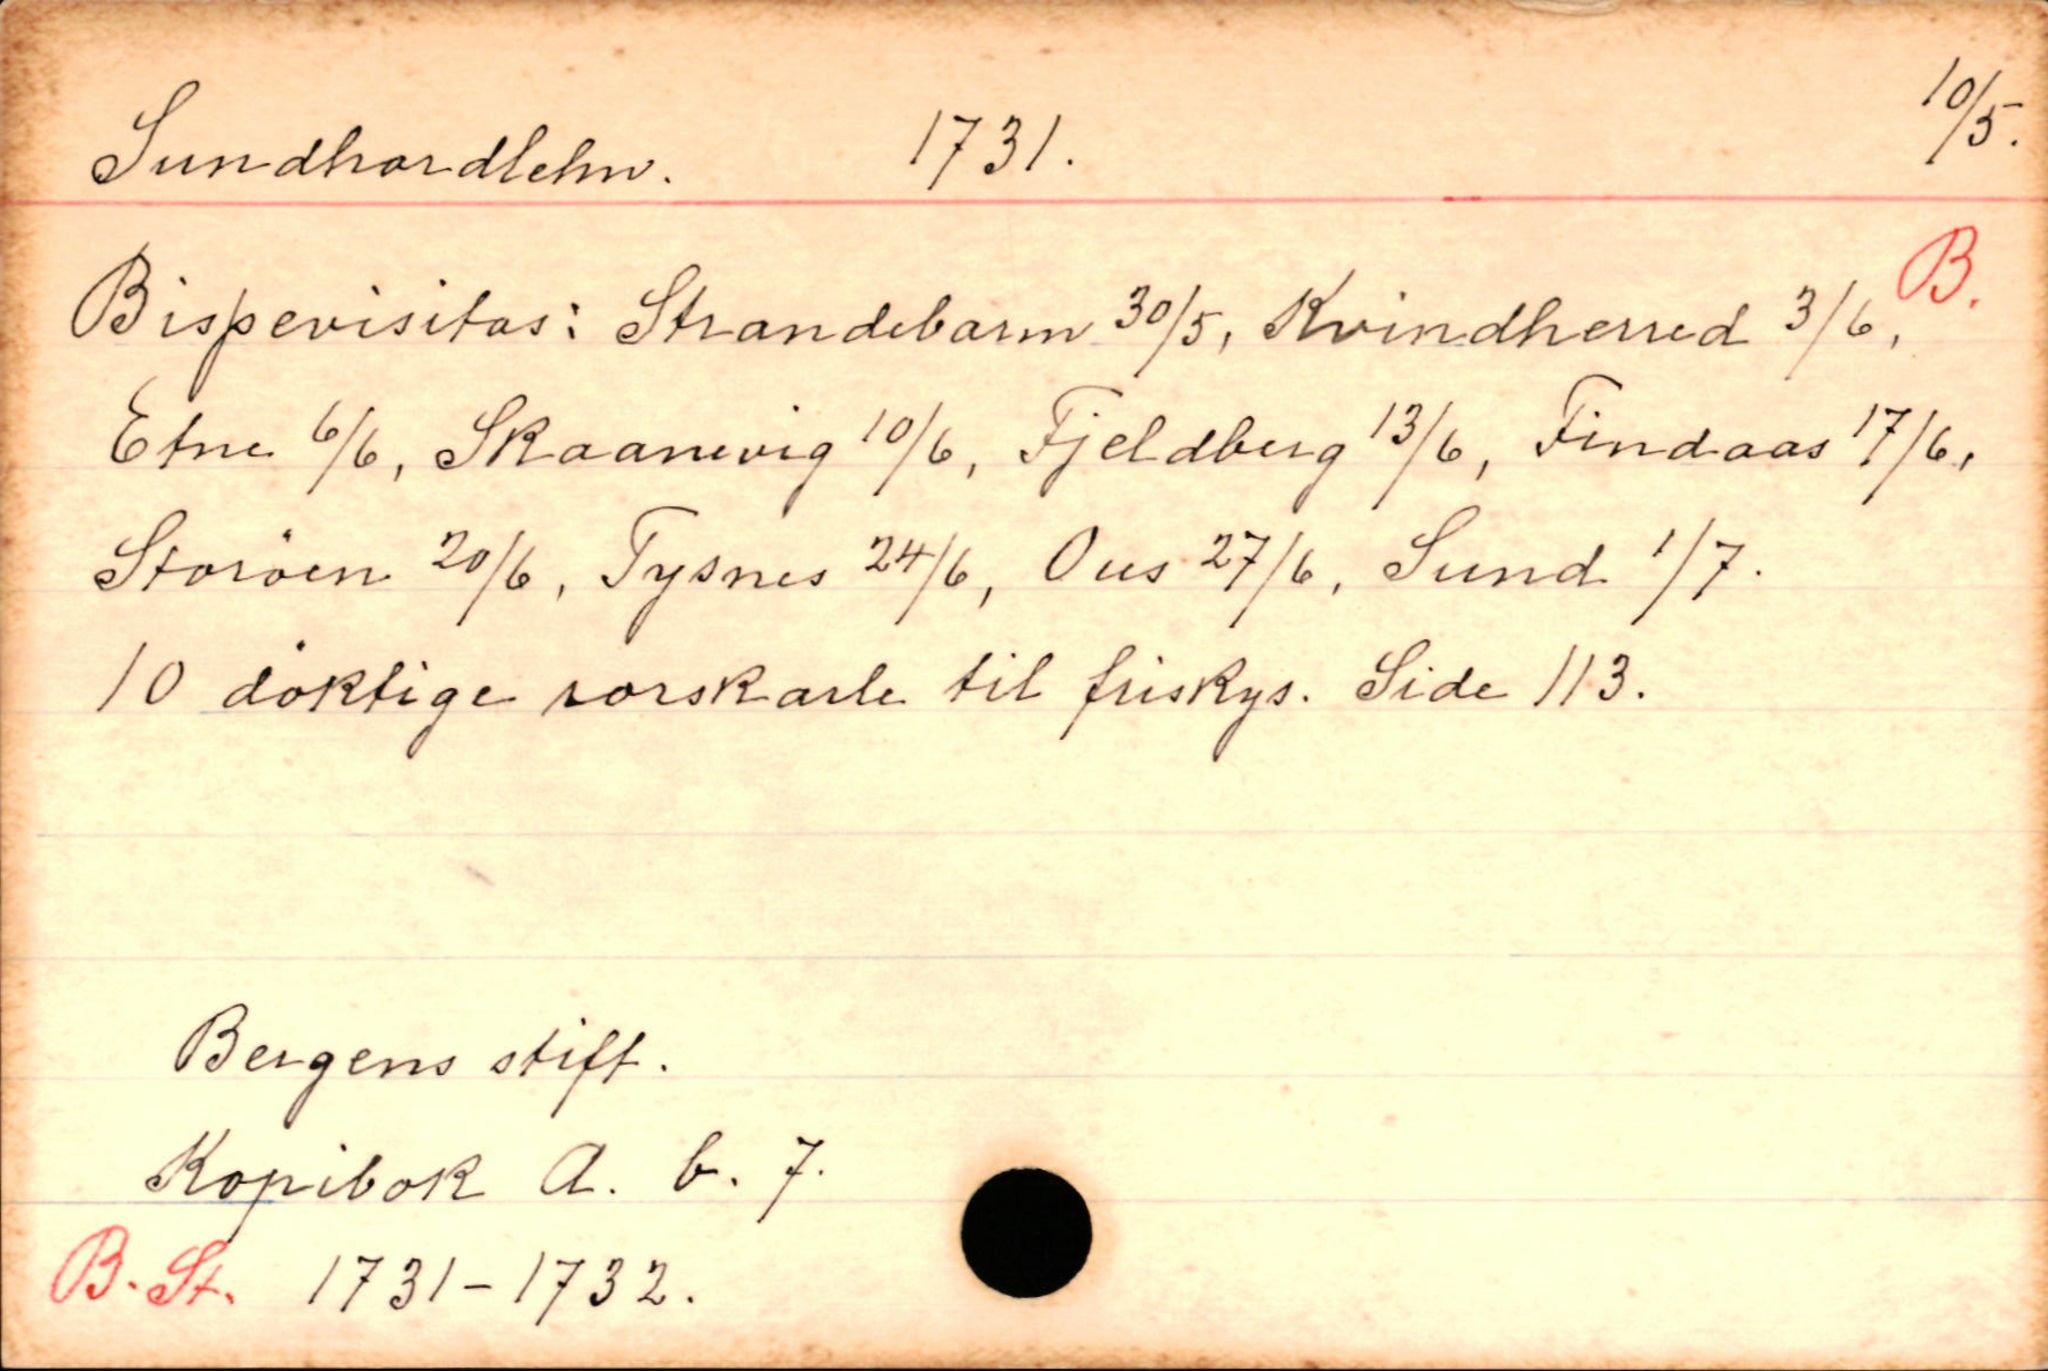 Sundhordlehn. 1731. 10/5.
B.
Bispevisitas: Strandebarm 30/5, Kvindherred 3/6,
Etne 6/6, Skaanevig 10/6, Fjeldberg 13/6, Findaas 17/6,
Storöen 20/6, Tysnes 24/6, Ous 27/6, Sund 1/7.
10 döktige rorskarle til friskys. Side 113.
Bergens stift.
Kopibok A. b. 7.
B. St. 1731-1732.